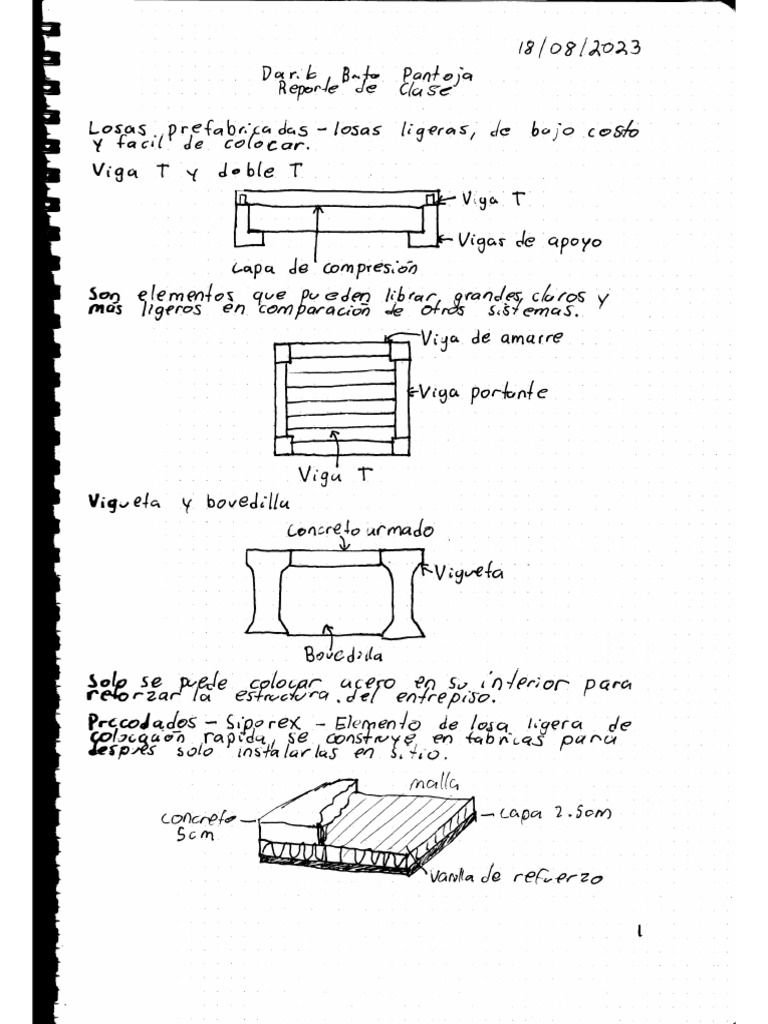 18/08/2023
Darib Bato Pantoja
Reporte de Clase
Losas prefabricadas - losas ligeras, de bajo costo
y facil de colocar.
Viga T y doble T
Viga T
Vigas de apoyo
Capa de compresión
Son elementos que pueden librar grandes claros y
más ligeros en comparación de otros sistemas.
Viga de amarre
Viga portante
Viga T
Vigueta y bovedilla
Concreto armado
Vigueta
Bovedilla
Solo se puede colocar acero en su interior para
reforzar la estructura del entrepiso.
Precodados - Siporex - Elemento de losa ligera de
colocación rapida, se construye en fabricas para
despues solo instalarlas en sitio.
malla
concreto
5cm
capa 2.5cm
Varilla de refuerzo
1